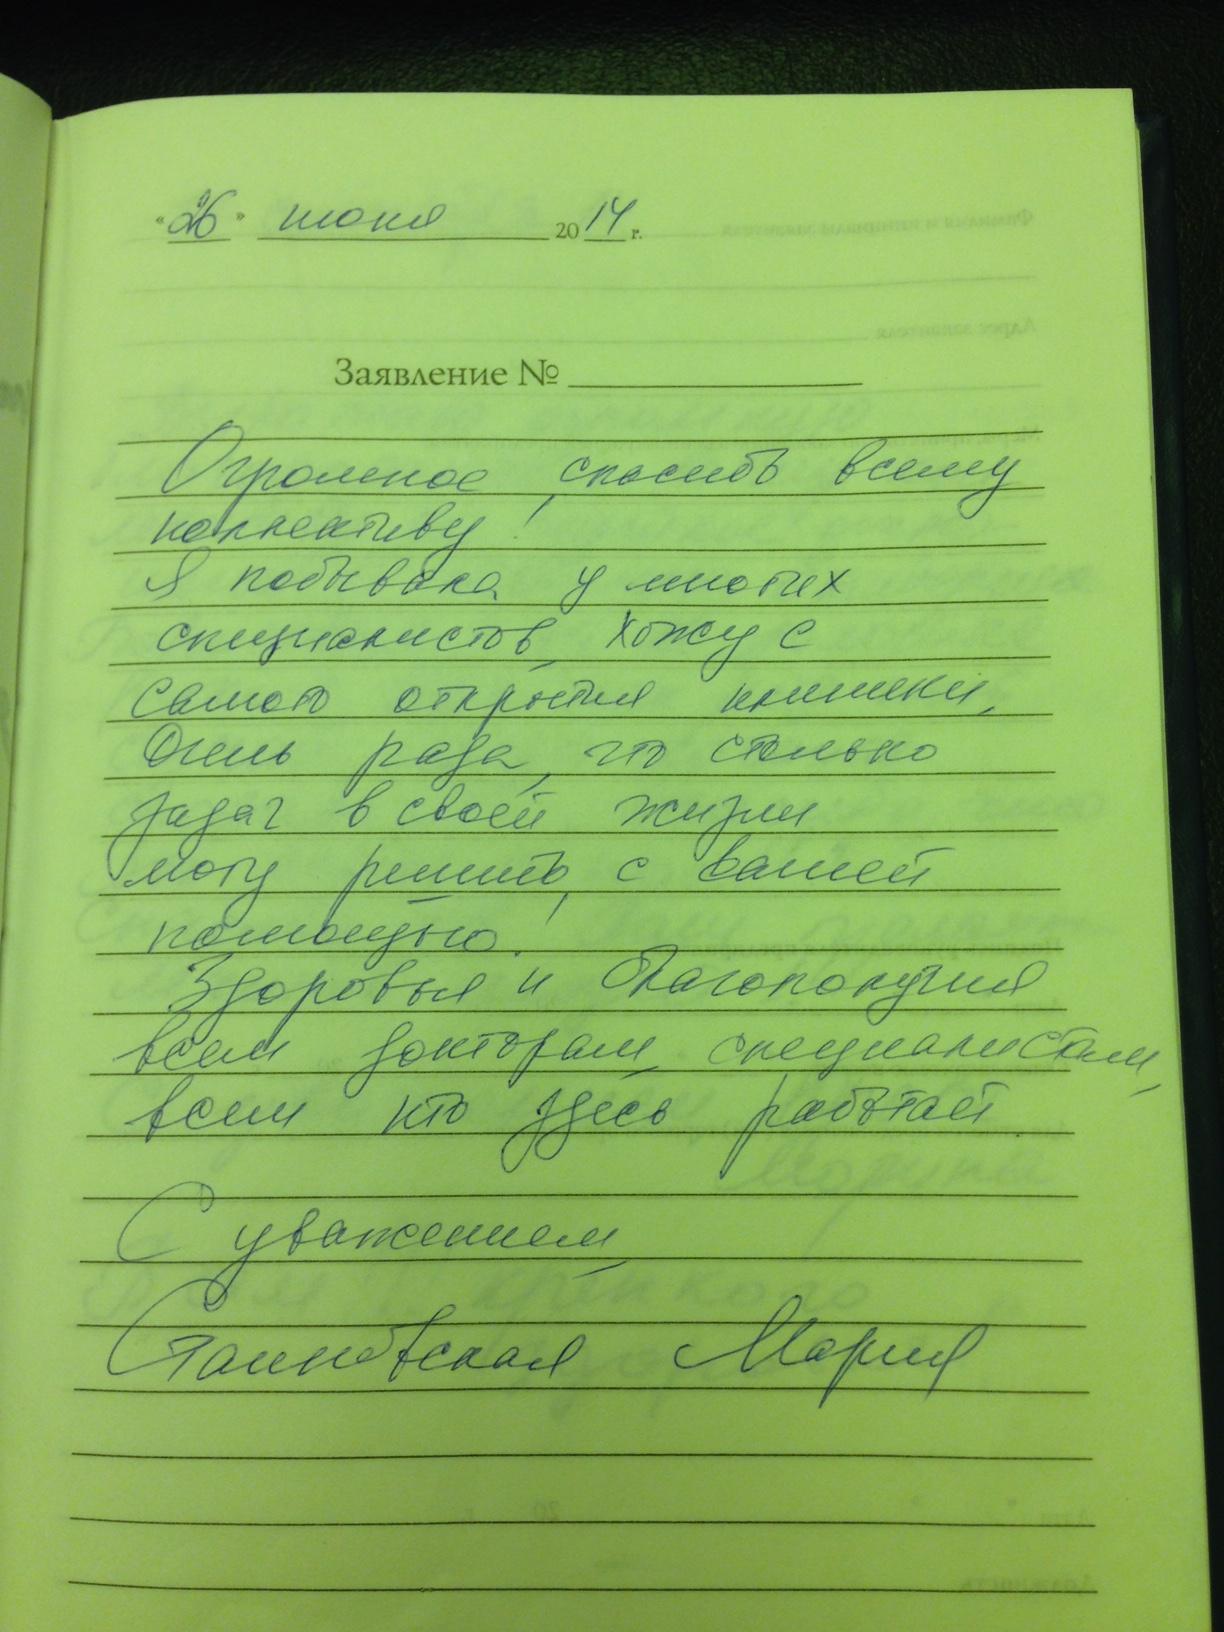 «26» июня 2014 г.
Заявление №
Огромное спасибо всему
коллективу!
Я побывала у многих
специалистов, хожу с
самого открытия клиники.
Очень рада, что столько
задач в своей жизни
могу решить, с вашей
помощью!
Здоровья и благополучия
всем докторам, специалистам,
всем кто здесь работает.
С уважением,
Мария